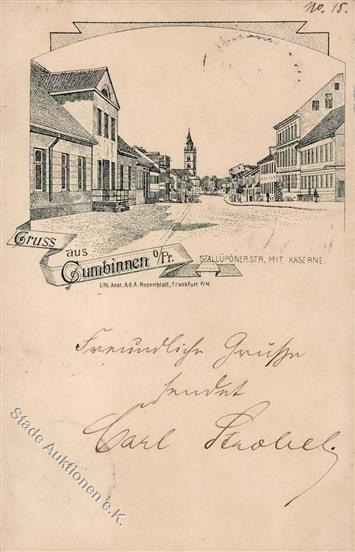 No. 15.
Gruss
aus
Gumbinnen O/Pr.
STALLÜPÖNERSTR. MIT KASERNE.
Lith. Anst. Ad. A. Rosenblatt, Frankfurt a/M.
Freundliche Grüße
sendet
Carl Strobel.
Stade Auktionen e.K.